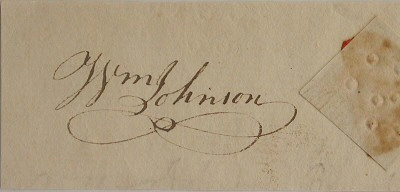 Wm Johnson